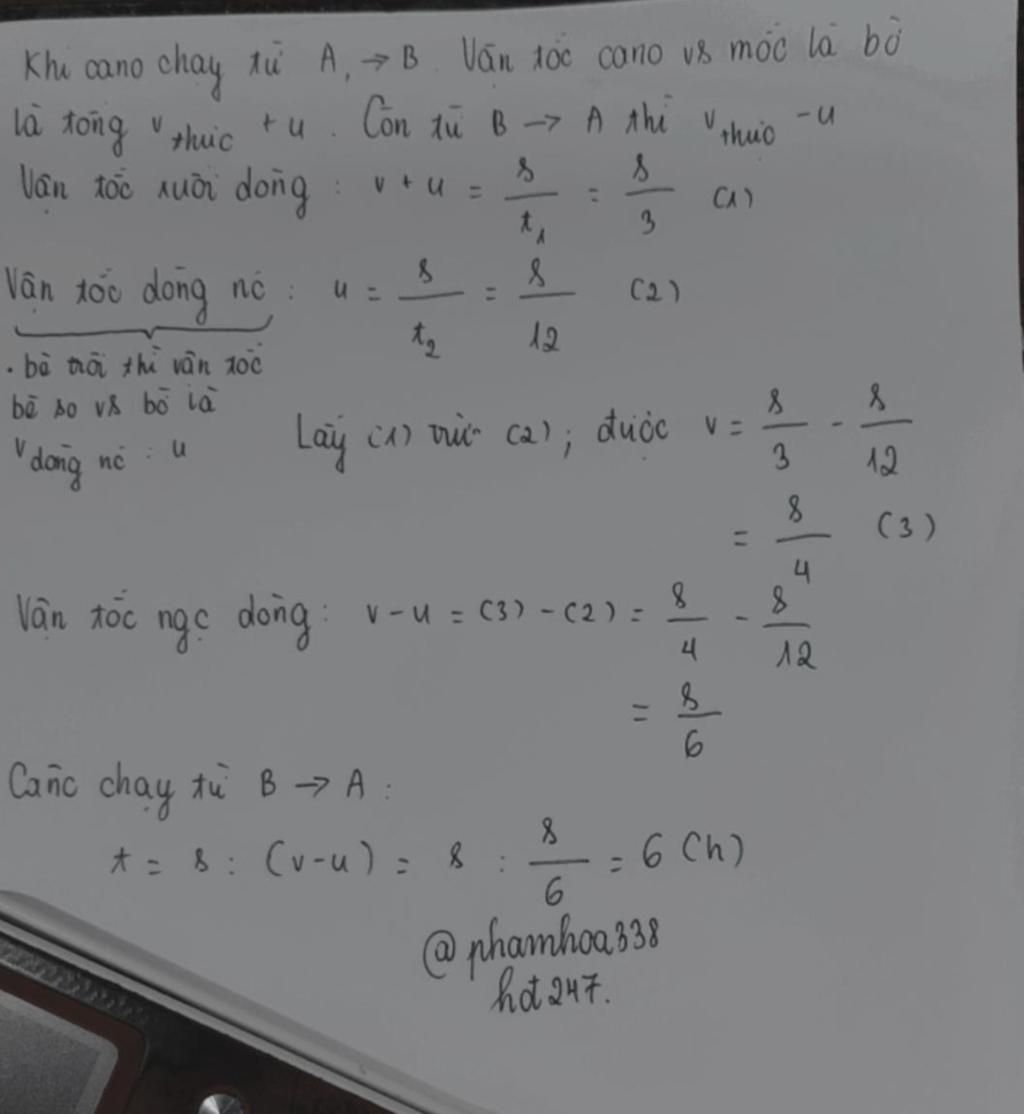 Khi cano chạy từ A → B. Vận tốc cano vs mốc là bờ
là tổng v thực + u. Còn từ B → A thì v thực - u
Vận tốc xuôi dòng: v + u = s/t₁ = s/3 (1)
Vận tốc dòng nc: u = s/t₂ = s/12 (2)
. bè trôi thì vận tốc
bè so vs bờ là
v dòng nc : u
Lấy (1) trừ (2); được v = s/3 - s/12
= s/4 (3)
Vận tốc ngc dòng: v - u = (3) - (2) = s/4 - s/12
= s/6
Canô chạy từ B → A:
t = s : (v-u) = s : s/6 = 6 (h)
@phamhoa338
hd247.